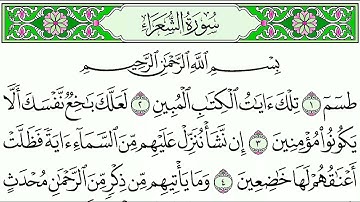 سُورَةُ الشُّعَرَاءِ
بِسْمِ اللَّهِ الرَّحْمَٰنِ الرَّحِيمِ
طسٓمٓ ١ تِلْكَ ءَايَٰتُ الْكِتَٰبِ الْمُبِينِ ٢ لَعَلَّكَ بَٰخِعٌ نَّفْسَكَ أَلَّا
يَكُونُوا۟ مُؤْمِنِينَ ٣ إِن نَّشَأْ نُنَزِّلْ عَلَيْهِم مِّنَ السَّمَآءِ ءَايَةً فَظَلَّتْ
أَعْنَٰقُهُمْ لَهَا خَٰضِعِينَ ٤ وَمَا يَأْتِيهِم مِّن ذِكْرٍ مِّنَ الرَّحْمَٰنِ مُحْدَثٍ